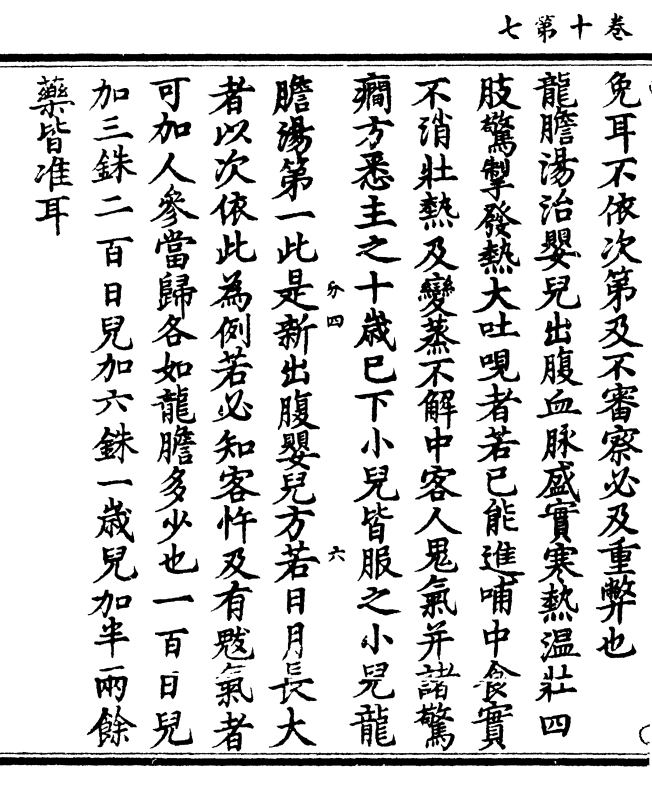 卷十第七
免耳不依次第及不審察必及重弊也
龍膽湯治嬰兒出腹血脉盛實寒熱温壯四
肢驚掣發熱大吐哯者若已能進哺中食實
不消壯熱及變蒸不解中客人鬼氣并諸驚
癇方悉主之十歲已下小兒皆服之小兒龍
分四
六
膽湯第一此是新出腹嬰兒方若日月長大
者以次依此為例若必知客忤及有魃氣者
可加人參當歸各如龍膽多少也一百日兒
加三銖二百日兒加六銖一歲兒加半兩餘
藥皆准耳